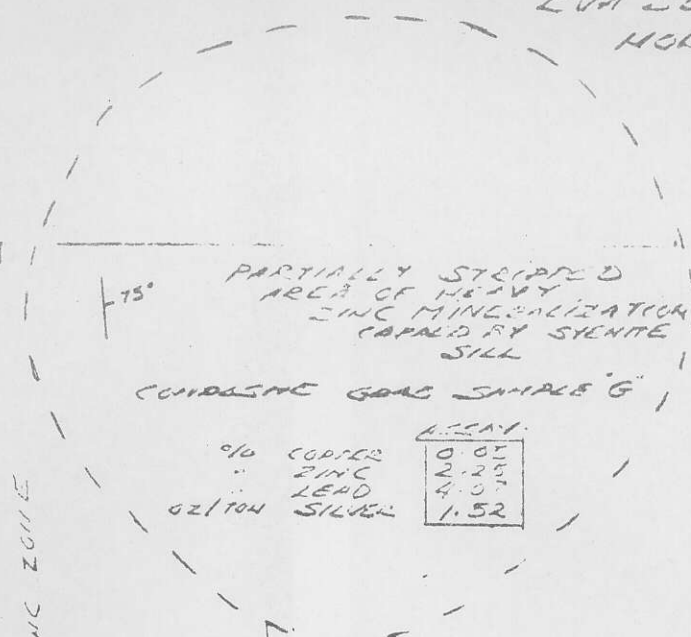 PARTIALLY STRIPPED
75°
AREA OF HEAVY
ZINC MINERALIZATION
CAPPED BY SYENITE
SILL
COMPOSITE GRAB SAMPLE "G"
ASSAY
% COPPER
" ZINC
" LEAD
OZ/TON SILVER 1.52
ZONE